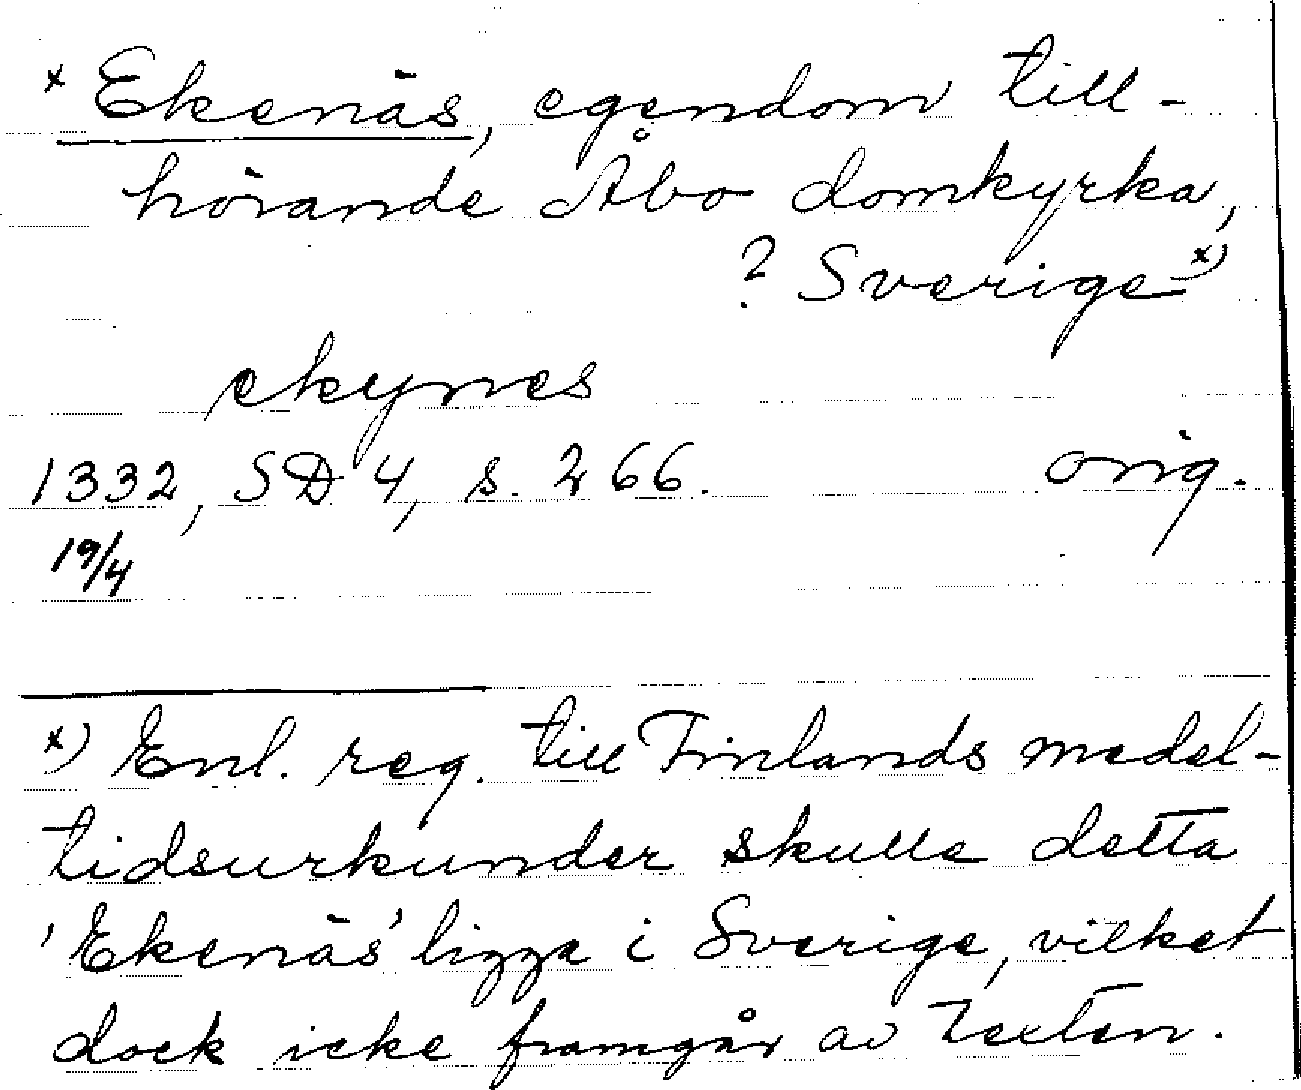 x Ekenäs, egendom till-
hörande Åbo domkyrka,
? Sverige x)
ekynes
1332, SD 4, s. 266. orig.
19/4
x) Enl. reg. till Finlands medel-
tidsurkunder skulle detta
'Ekenäs' ligga i Sverige, vilket
dock icke framgår av texten.